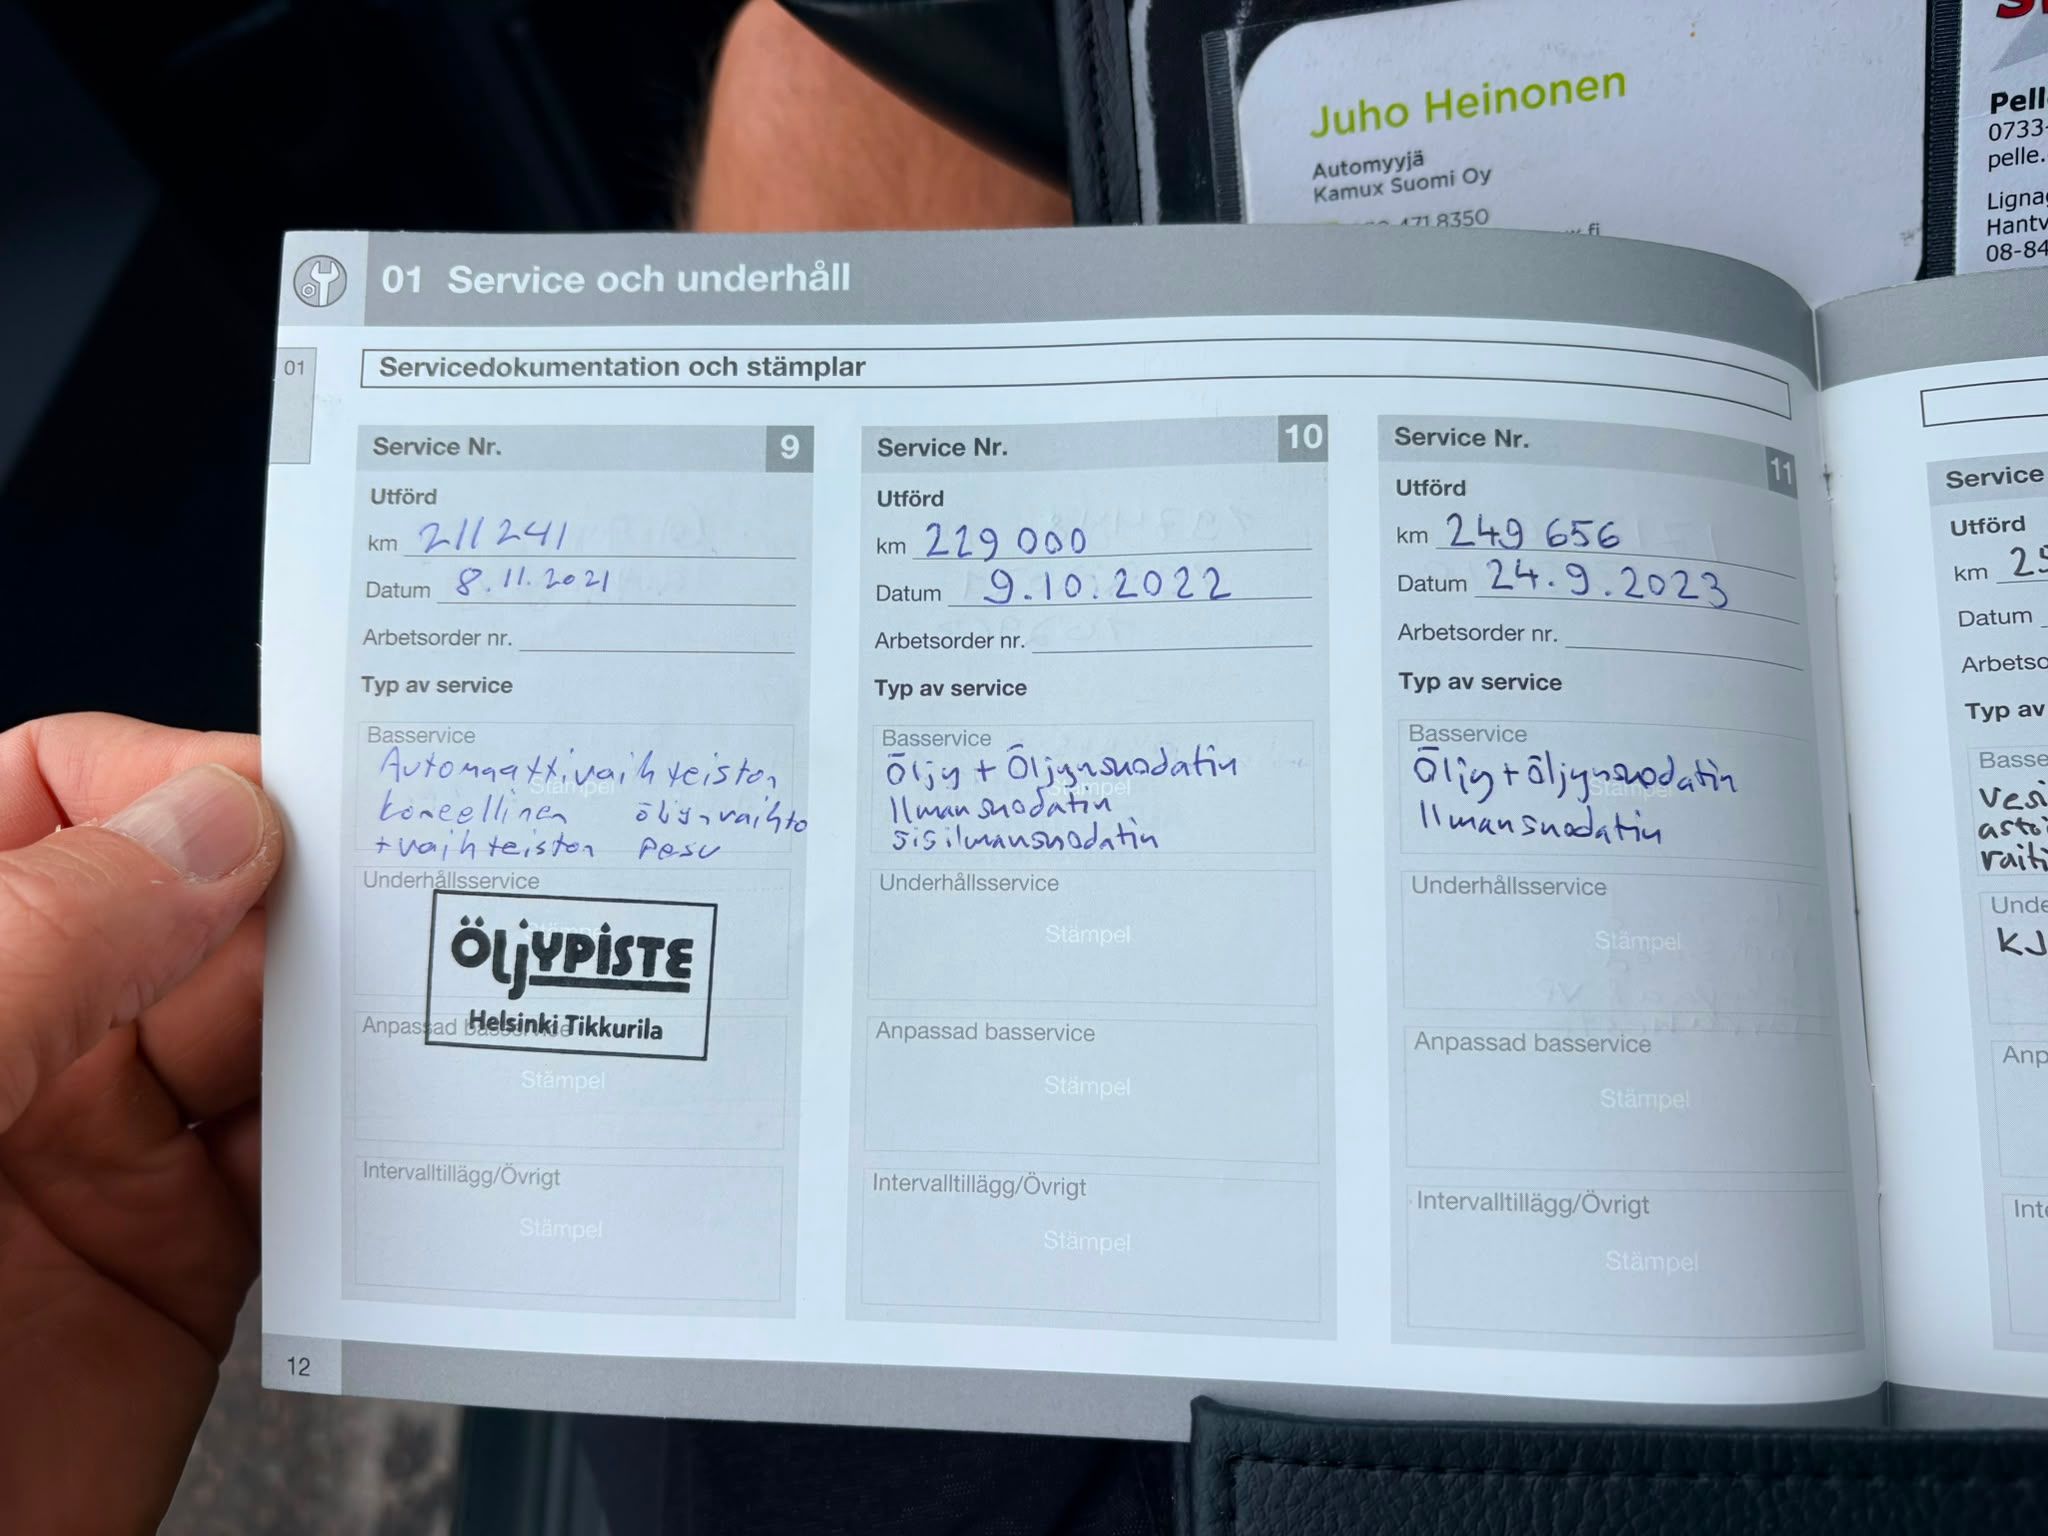 Juho Heinonen
Automyyjä
Kamux Suomi Oy
471 8350
Pelle
0733-
pelle.
08-84
01 Service och underhåll
01
Servicedokumentation och stämplar
Service Nr. 9
Utförd
km 211 241
Datum 8.11.2021
Arbetsorder nr.
Typ av service
Basservice
Automaattivaihteiston
koneellinen öljynvaihto
+ vaihteiston pesu
Stämpel
Underhållsservice
Stämpel
ÖLJYPISTE
Helsinki Tikkurila
Anpassad basservice
Stämpel
Intervalltillägg/Övrigt
Stämpel
Service Nr. 10
Utförd
km 229 000
Datum 9.10.2022
Arbetsorder nr.
Typ av service
Basservice
Öljy + Öljynsuodatin
Ilmansuodatin
sisilmansuodatin
Stämpel
Underhållsservice
Stämpel
Anpassad basservice
Stämpel
Intervalltillägg/Övrigt
Stämpel
Service Nr. 11
Utförd
km 249 656
Datum 24.9.2023
Arbetsorder nr.
Typ av service
Basservice
Öljy + öljynsuodatin
Ilmansuodatin
Stämpel
Underhållsservice
Stämpel
Anpassad basservice
Stämpel
Intervalltillägg/Övrigt
Stämpel
Service
Utförd
km 25
Datum
Typ av
12